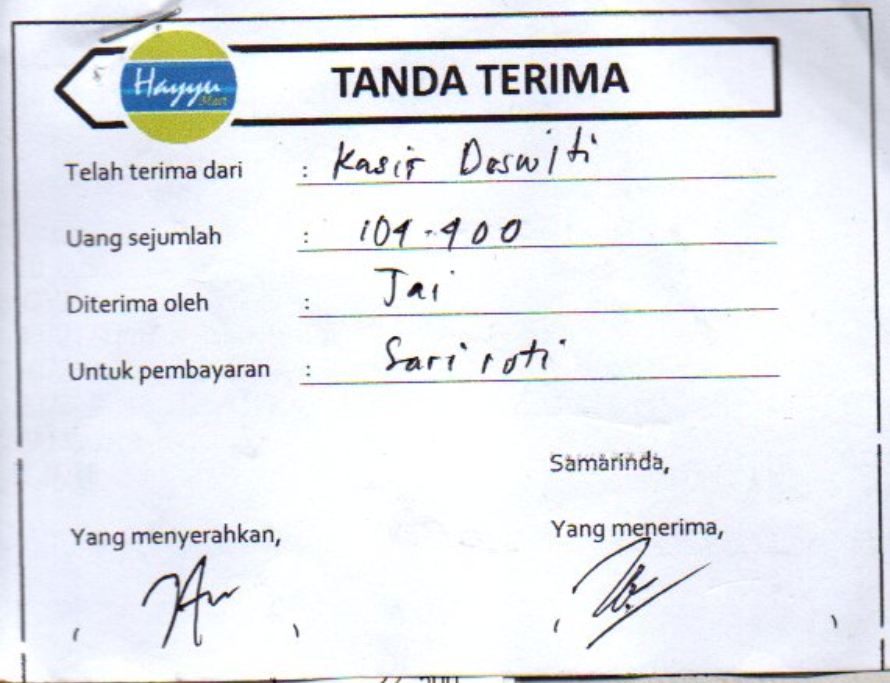 Hayyu
Mart
TANDA TERIMA
Telah terima dari : Kasir Doswiti
Uang sejumlah : 104.400
Diterima oleh : Jai
Untuk pembayaran : Sari roti
Samarinda,
Yang menyerahkan, Yang menerima,